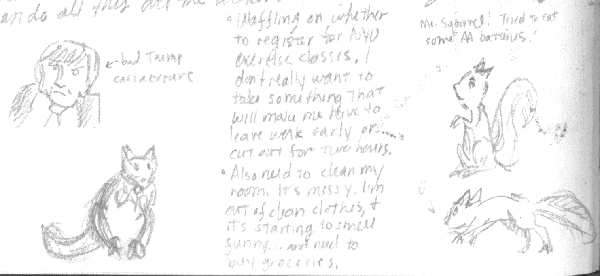 and do all this
← bad Trump
caricature
• Waffling on whether
to register for NYU
exercise classes. I
don't really want to
take something that
will make me have to
leave work early or
cut out for two hours.
• Also need to clean my
room. It's messy. I'm
out of clean clothes, &
it's starting to smell
funny... and need to
buy groceries.
Mr. Squirrel! Tried to eat
some AA batteries!